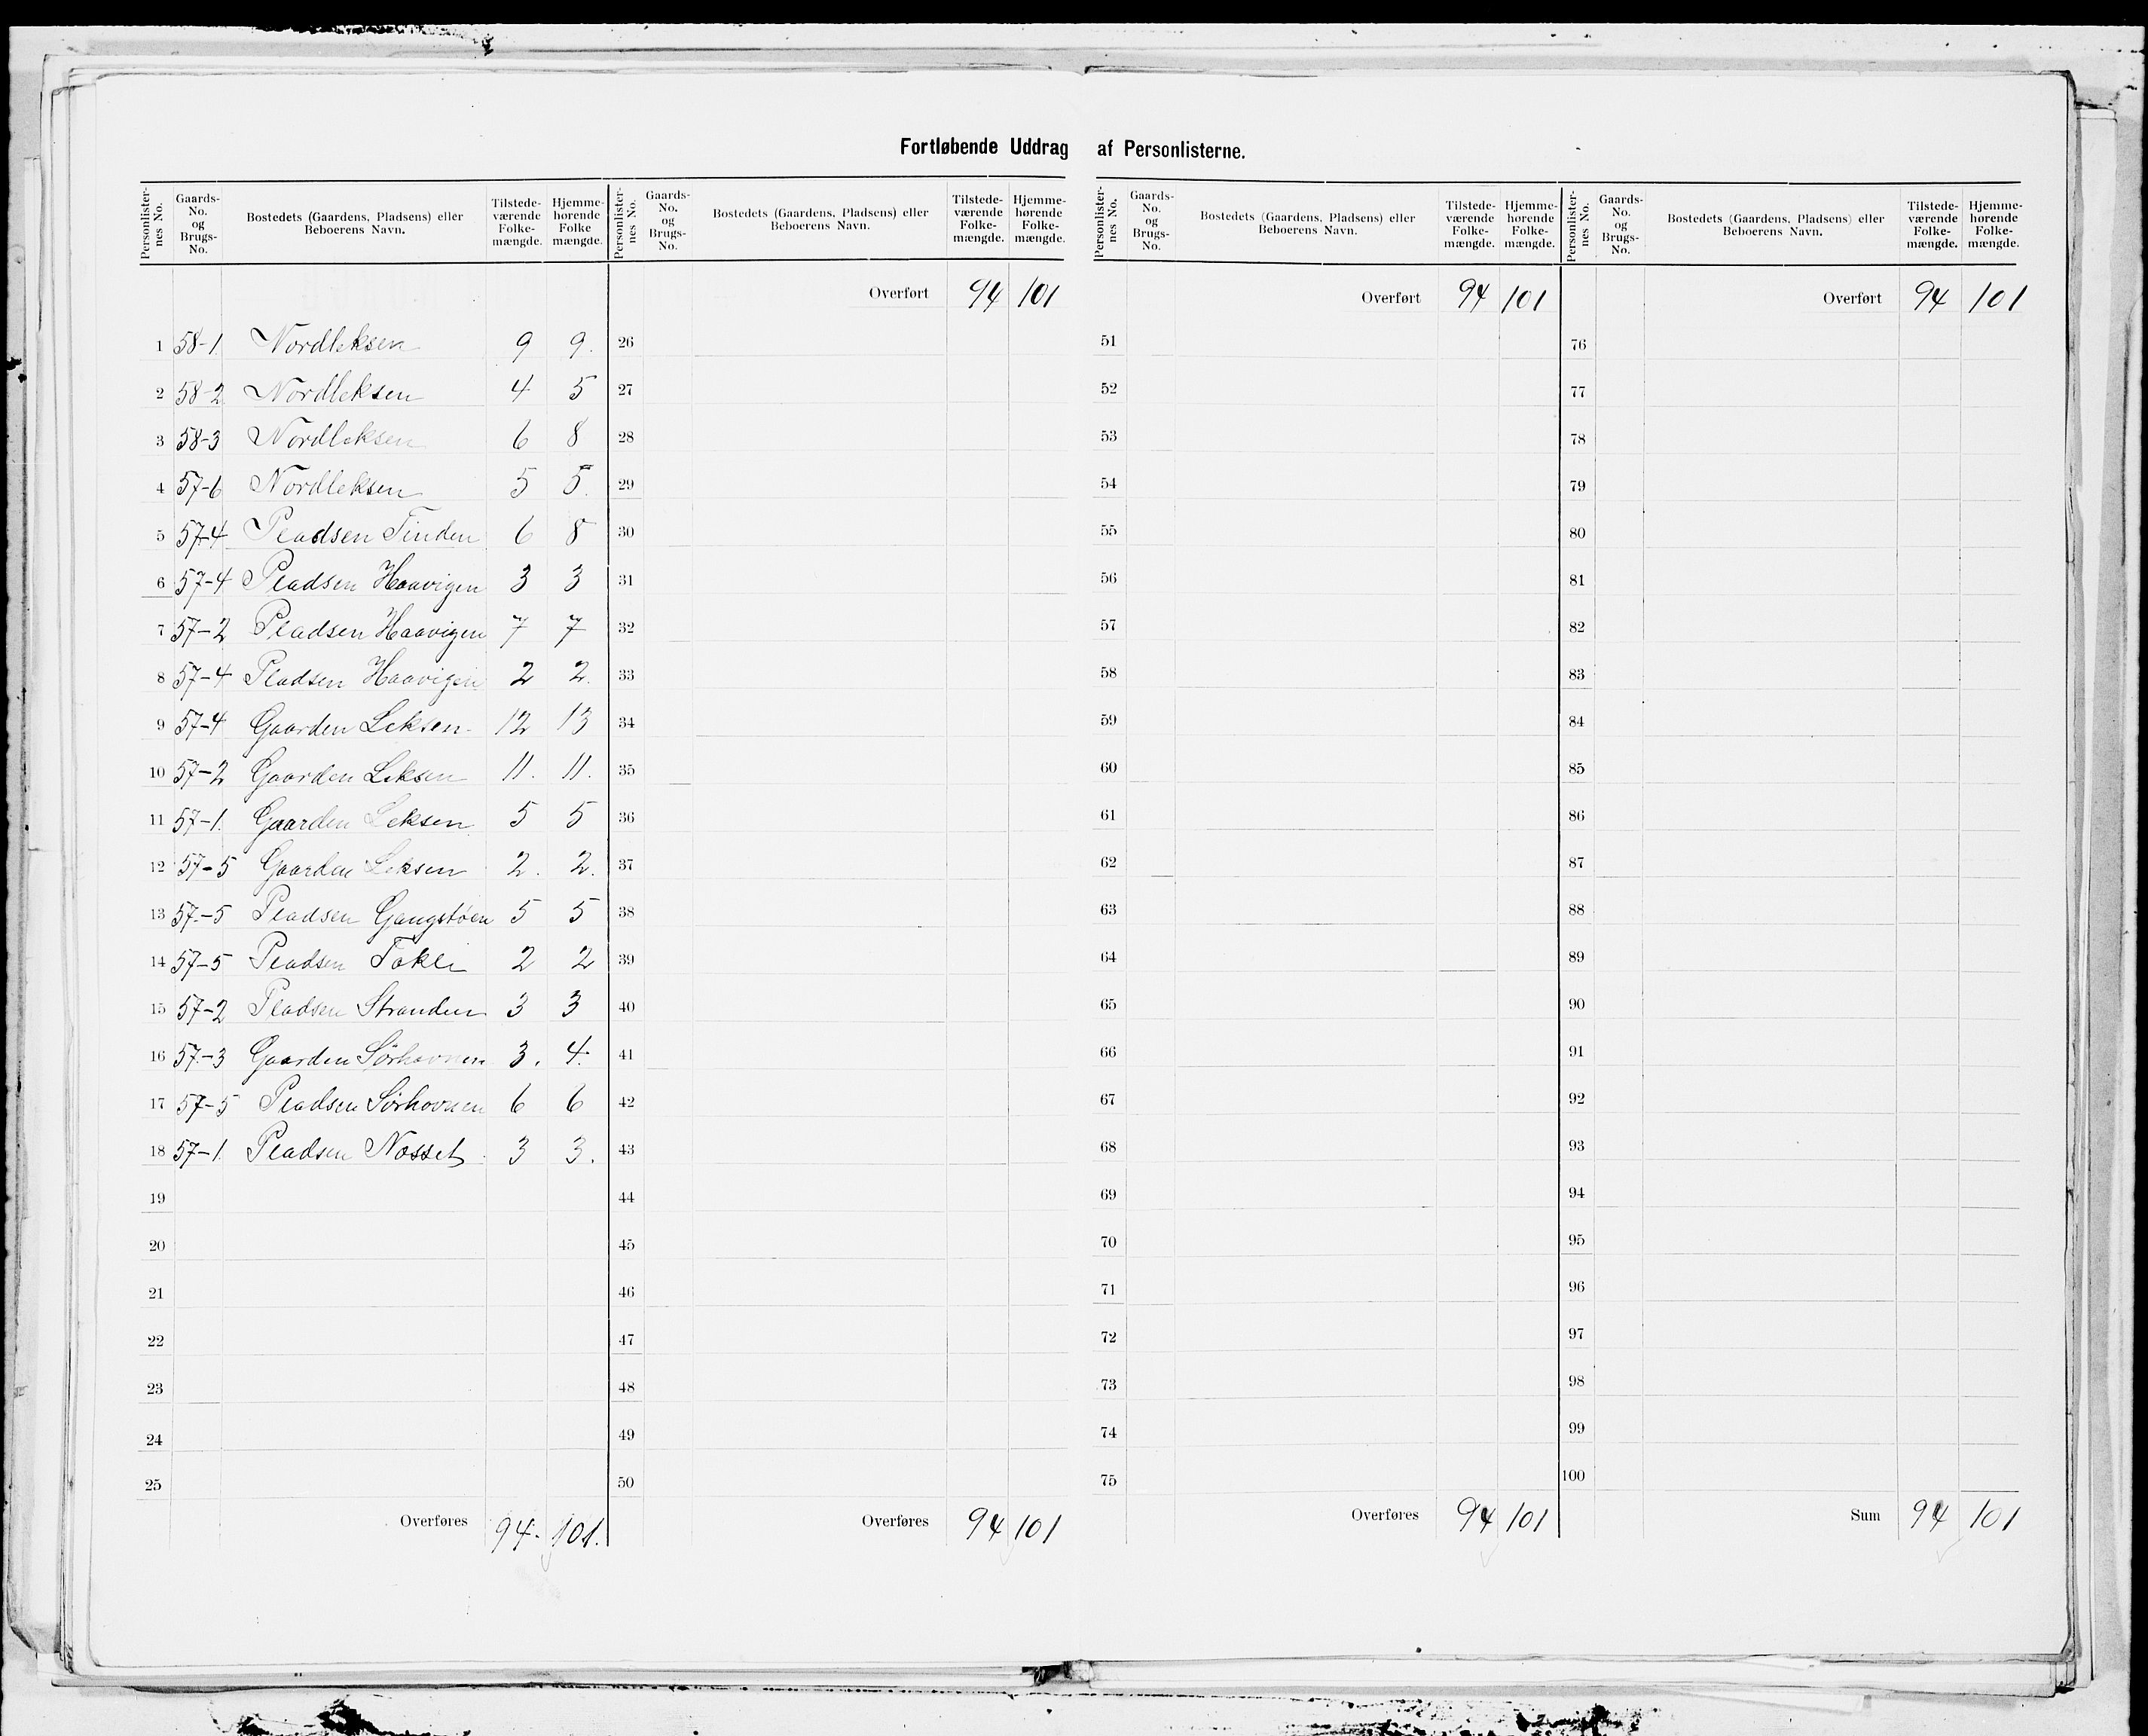 Fortløbende Uddrag af Personlisterne.
Personlisternes No. Gaards-No. og Brugs-No. Bostedets (Gaardens, Pladsens) eller Beboerens Navn. Tilstedeværende Folkemængde. Hjemmehørende Folkemængde.
1 58-1 Nordleksen 9 9.
2 58-2 Nordleksen 4 5
3 58-3 Nordleksen 6 8
4 57-6 Nordleksen 5 5.
5 57-4 Pladsen Tinden 6 8
6 57-4 Pladsen Haavigen 3 3
7 57-2 Pladsen Haavigen 7 7
8 57-4 Pladsen Haavigen 2 2.
9 57-4 Gaarden Leksen 12 13
10 57-2 Gaarden Leksen 11. 11.
11 57-1. Gaarden Leksen 5 5
12 57-5 Gaarden Leksen 2. 2.
13 57-5 Pladsen Gangstöen 5 5
14 57-5 Pladsen 2 2
15 57-2 Pladsen Stranden 3 3
16 57-3 Gaarden Sörhavnen 3. 4.
17 57-5 Pladsen Sörhovnen 6 6
18 57-1. Pladsen Nosset 3 3.
19
20
21
22
23
24
25
Overføres 94. 101.
Personlisternes No. Gaards-No. og Brugs-No. Bostedets (Gaardens, Pladsens) eller Beboerens Navn. Tilstedeværende Folkemængde. Hjemmehørende Folkemængde.
Overført 94 101
26
27
28
29
30
31
32
33
34
35
36
37
38
39
40
41
42
43
44
45
46
47
48
49
50
Overføres 94 101
Personlisternes No. Gaards-No. og Brugs-No. Bostedets (Gaardens, Pladsens) eller Beboerens Navn. Tilstedeværende Folkemængde. Hjemmehørende Folkemængde.
Overført 94 101
51
52
53
54
55
56
57
58
59
60
61
62
63
64
65
66
67
68
69
70
71
72
73
74
75
Overføres 94 101
Personlisternes No. Gaards-No. og Brugs-No. Bostedets (Gaardens, Pladsens) eller Beboerens Navn. Tilstedeværende Folkemængde. Hjemmehørende Folkemængde.
Overført 94 101
76
77
78
79
80
81
82
83
84
85
86
87
88
89
90
91
92
93
94
95
96
97
98
99
100
Sum 94 101